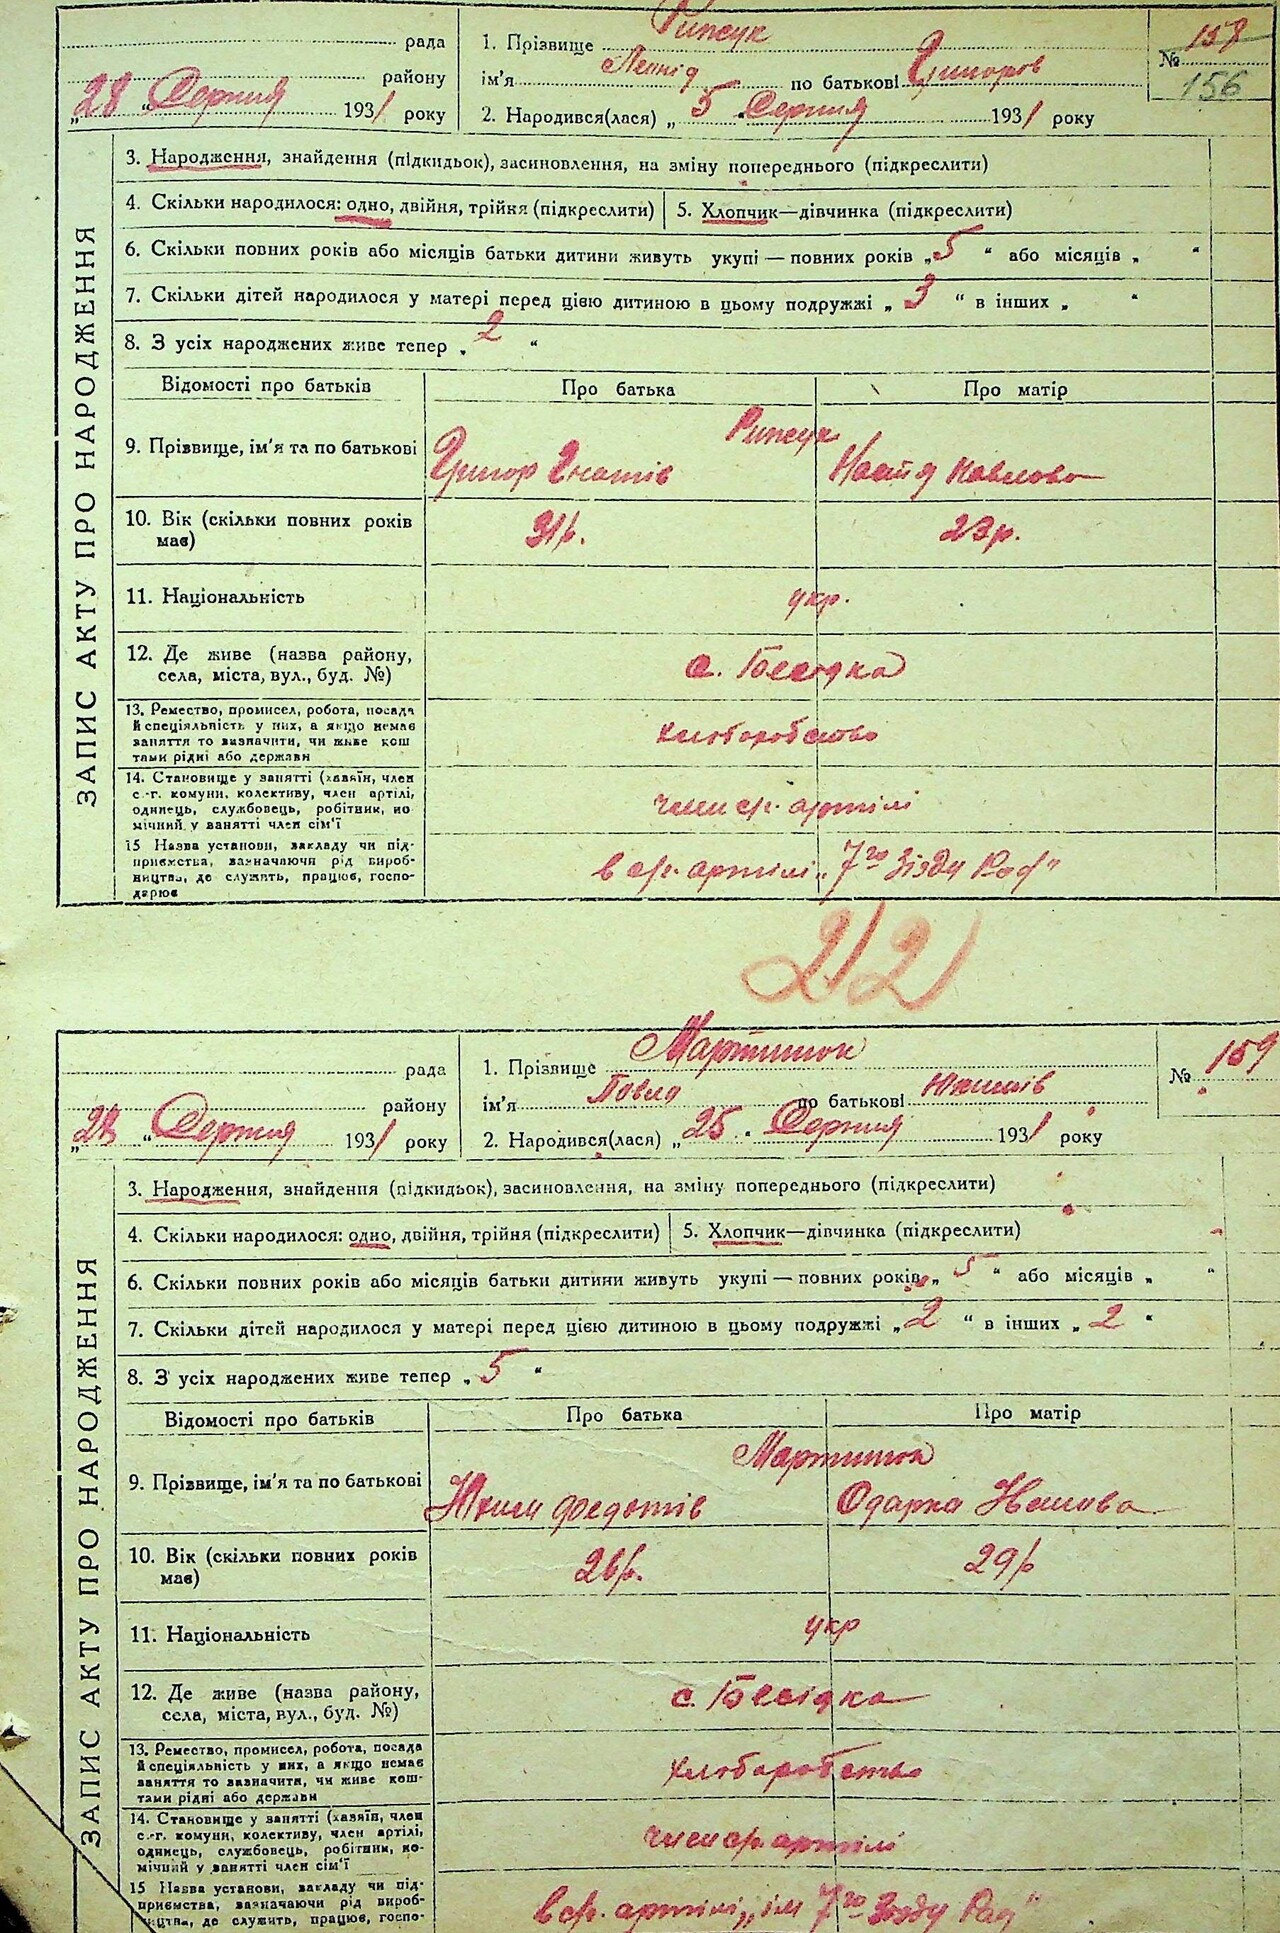 рада
району
„28“ Серпня 1931 року
1. Прізвище Рипсук
ім'я Леонід по батькові Григоров
2. Народився(лася) „5“ Серпня 1931 року
№ 158
156
ЗАПИС АКТУ ПРО НАРОДЖЕННЯ
3. Народження, знайдення (підкидьок), засиновлення, на зміну попереднього (підкреслити)
4. Скільки народилося: одно, двійня, трійня (підкреслити) 5. Хлопчик—дівчинка (підкреслити)
6. Скільки повних років або місяців батьки дитини живуть укупі — повних років „5“ або місяців „ “
7. Скільки дітей народилося у матері перед цією дитиною в цьому подружжі „3“ в інших „ “
8. З усіх народжених живе тепер „2“
Відомості про батьків Про батька Про матір
9. Прізвище, ім'я та по батькові
Рипсук
Григор Гнатів Павлова
10. Вік (скільки повних років має) 31 р. 23 р.
11. Національність укр.
12. Де живе (назва району, села, міста, вул., буд. №) с. Бесідка
13. Ремество, промисел, робота, посада
й спеціяльність у них, а якщо немає
заняття то визначити, чи живе кош
тами рідні або держави
хлоборобство
14. Становище у занятті (хазяїн, член
с.-г. комуни, колективу, член артілі,
одинець, службовець, робітник, по
мічний у занятті член сім'ї
член с/г. артілі
15 Назва установи, закладу чи під-
приємства, зазначаючи рід вироб-
ництва, де служить, працює, госпо-
дарює
в с/г. артілі „7го Зізду Рад“
22
рада
району
„28“ Серпня 1931 року
1. Прізвище Мартинюк
ім'я Павло по батькові Юхимів
2. Народився(лася) „25“ Серпня 1931 року
№ 159
ЗАПИС АКТУ ПРО НАРОДЖЕННЯ
3. Народження, знайдення (підкидьок), засиновлення, на зміну попереднього (підкреслити)
4. Скільки народилося: одно, двійня, трійня (підкреслити) 5. Хлопчик—дівчинка (підкреслити)
6. Скільки повних років або місяців батьки дитини живуть укупі — повних років „5“ або місяців „ “
7. Скільки дітей народилося у матері перед цією дитиною в цьому подружжі „2“ в інших „2“
8. З усіх народжених живе тепер „5“
Відомості про батьків Про батька Про матір
9. Прізвище, ім'я та по батькові
Мартинюк
Юхим Федотів Одарка
10. Вік (скільки повних років має) 26 р. 29 р
11. Національність укр
12. Де живе (назва району, села, міста, вул., буд. №) с. Бесідка
13. Ремество, промисел, робота, посада
й спеціяльність у них, а якщо немає
заняття то зазначити, чи живе кош-
тами рідні або держави
хлоборобство
14. Становище у занятті (хазяїн, член
с.-г. комуни, колективу, член артілі,
одинець, службовець, робітник, по-
мічний у занятті член сім'ї
член с/г. артілі
15 Назва установи, закладу чи під-
приємства, зазначаючи рід вироб-
ництва, де служить, працює, госпо-
в с/г. артілі „ім 7го Зізду Рад“